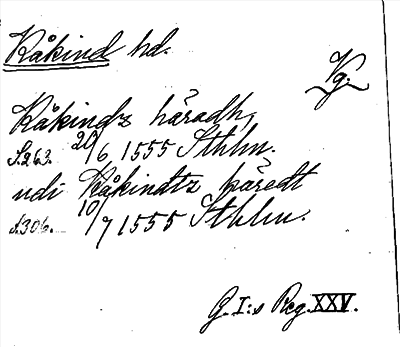 Kåkind hd.
Vg.
Kåkindz häradh,
S.263. 20/6 1555 Sthlm.
udi Kåkindtz häredt
S.306. 10/7 1555 Sthlm.
G. I:s Reg. XXV.